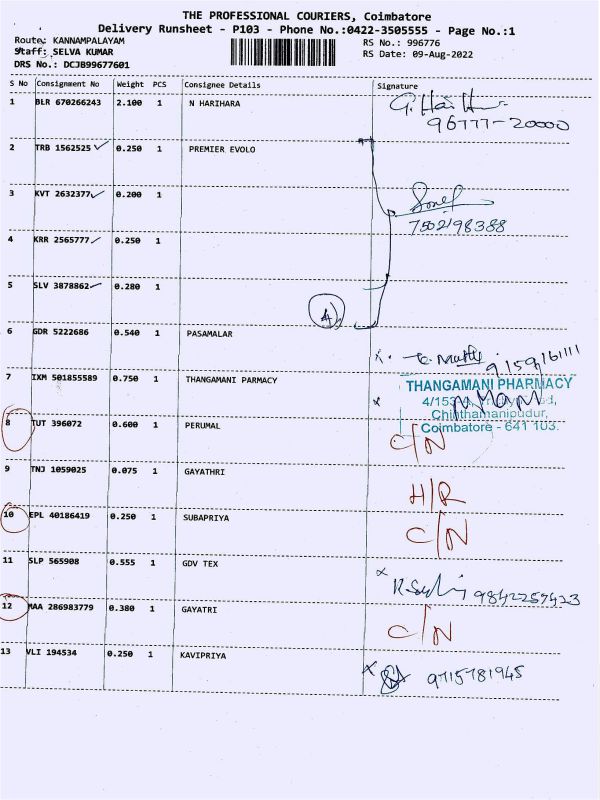 THE PROFESSIONAL COURIERS, Coimbatore
Delivery Runsheet - P103 - Phone No.:0422-3505555 - Page No.:1
Route: KANNAMPALAYAM
RS No.: 996776
Staff: SELVA KUMAR
RS Date: 09-Aug-2022
DRS No.: DCJB99677601
S No Consignment No Weight PCS Consignee Details Signature
1 BLR 670266243 2.100 1 N HARIHARA
96777-20000
2 TRB 1562525 0.250 1 PREMIER EVOLO
3 KVT 2632377 0.200 1
7502198388
4 KRR 2565777 0.250 1
5 SLV 3878862 0.280 1
4
6 GDR 5222686 0.540 1 PASAMALAR
9159161111
7 IXM 501855589 0.750 1 THANGAMANI PARMACY
THANGAMANI PHARMACY
4/153
Chinthamanipudur,
Coimbatore - 641 103.
8 TUT 396072 0.600 1 PERUMAL C/N
9 TNJ 1059025 0.075 1 GAYATHRI H/R
10 EPL 40186419 0.250 1 SUBAPRIYA C/N
11 SLP 565908 0.555 1 GDV TEX
9842257423
12 MAA 286983779 0.380 1 GAYATRI C/N
13 VLI 194534 0.250 1 KAVIPRIYA 9715781945